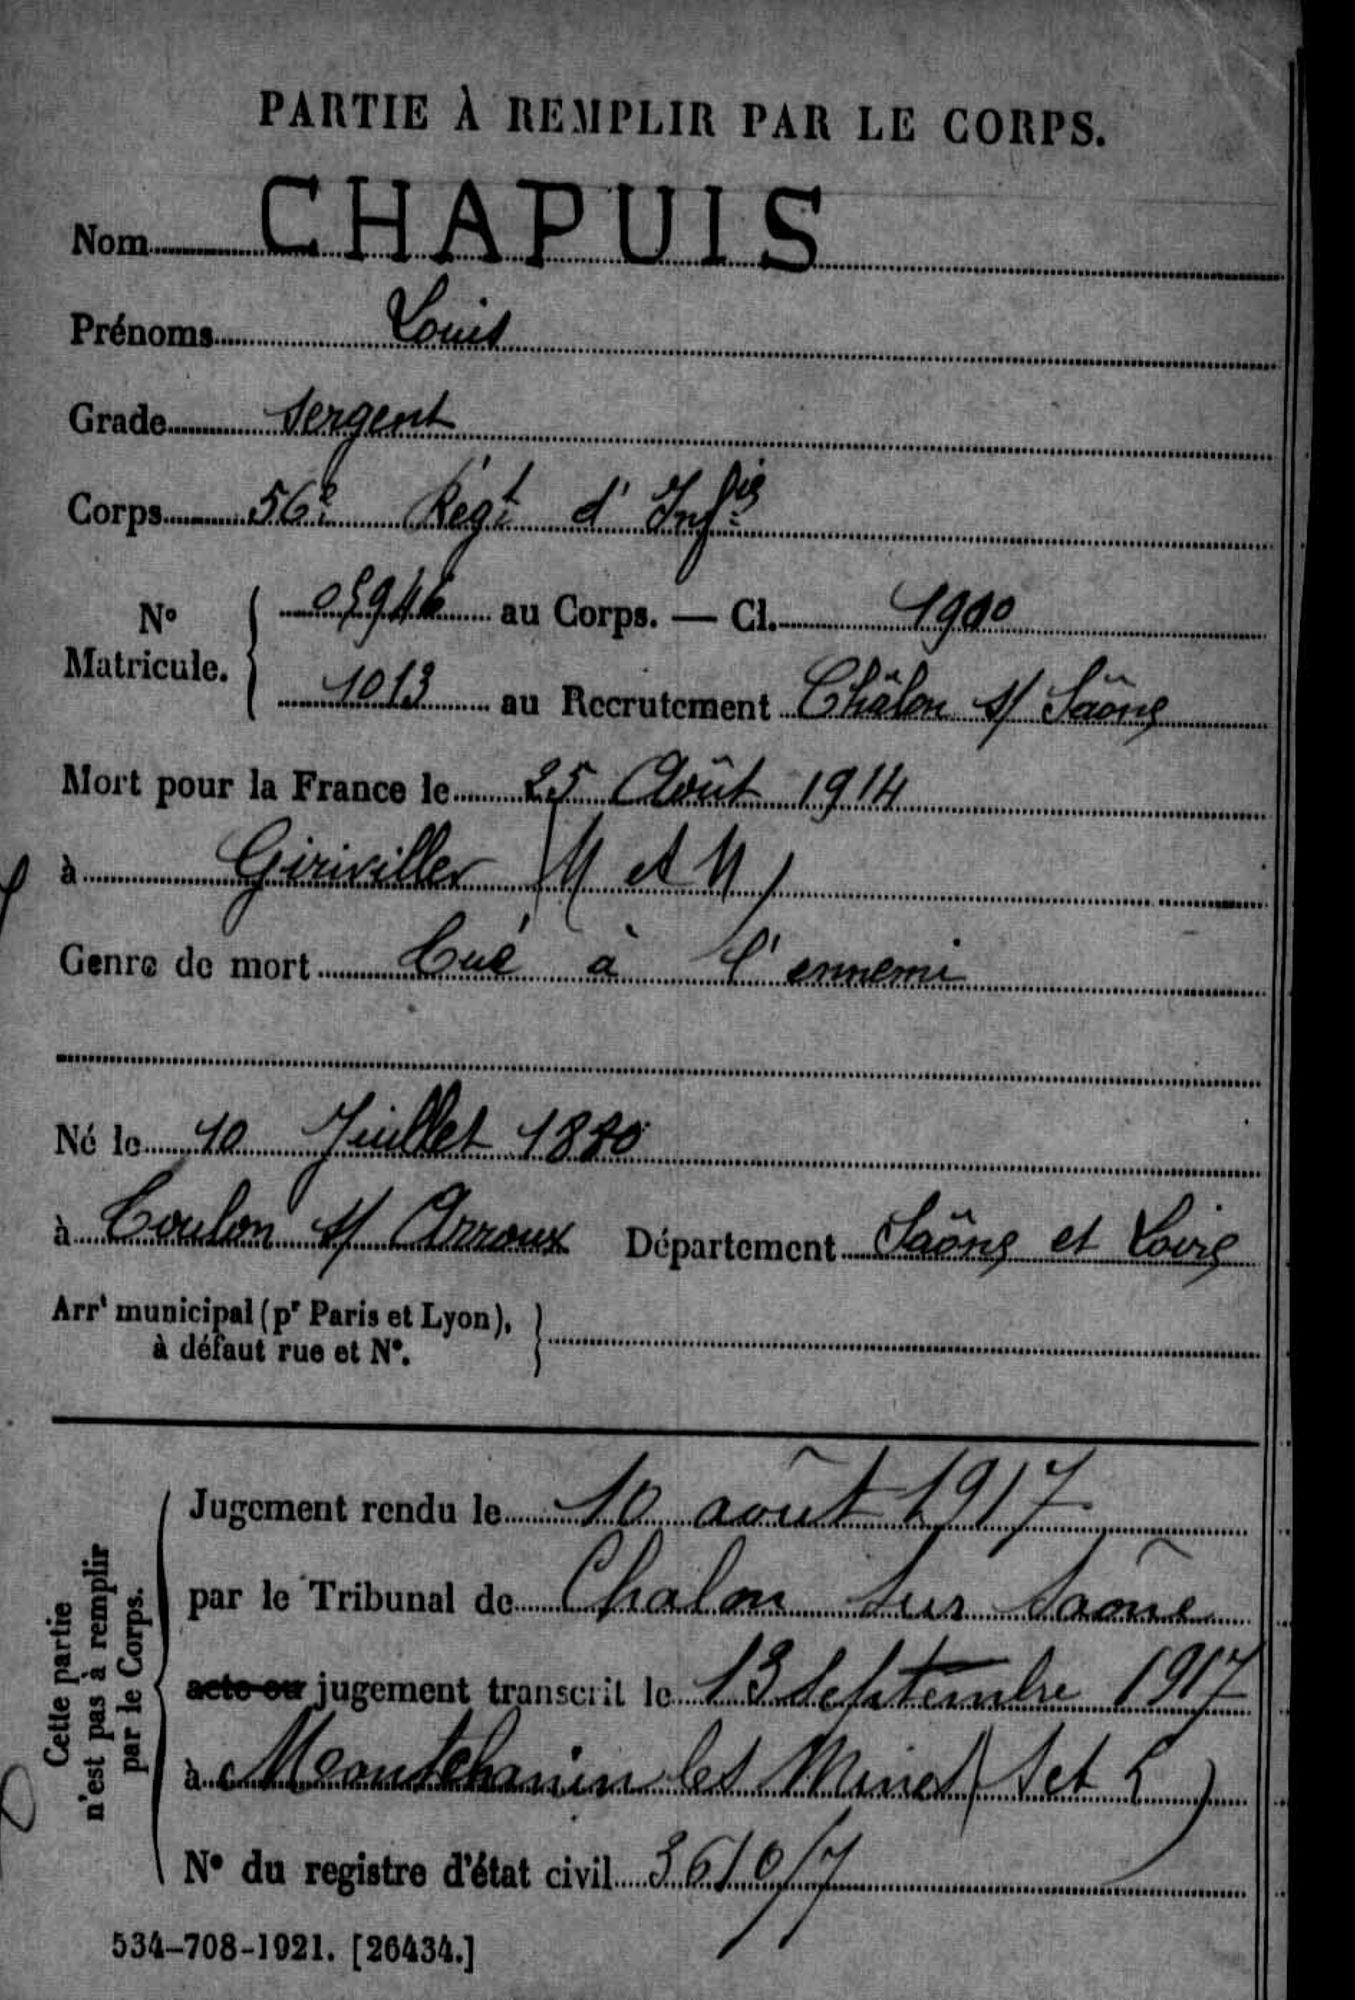 PARTIE À REMPLIR PAR LE CORPS.
Nom CHAPUIS
Prénoms Louis
Grade Sergent
Corps 56e Régt d'Infie
No Matricule. 05946 au Corps. — Cl. 1900
1013 au Recrutement Châlon s/ Saône
Mort pour la France le 25 Août 1914
à Giriviller (M et M)
Genre de mort Tué à l'ennemi
Né le 10 Juillet 1880
à Toulon s/ Arroux Département Saône et Loire
Arrt municipal (pr Paris et Lyon),
à défaut rue et No.
Cette partie
n'est pas à remplir
par le Corps.
Jugement rendu le 10 août 1917
par le Tribunal de Chalon sur Saône
acte ou jugement transcrit le 13 Septembre 1917
à Montchanin les Mines (S et L)
No du registre d'état civil 3610/7
534-708-1921. [26434.]